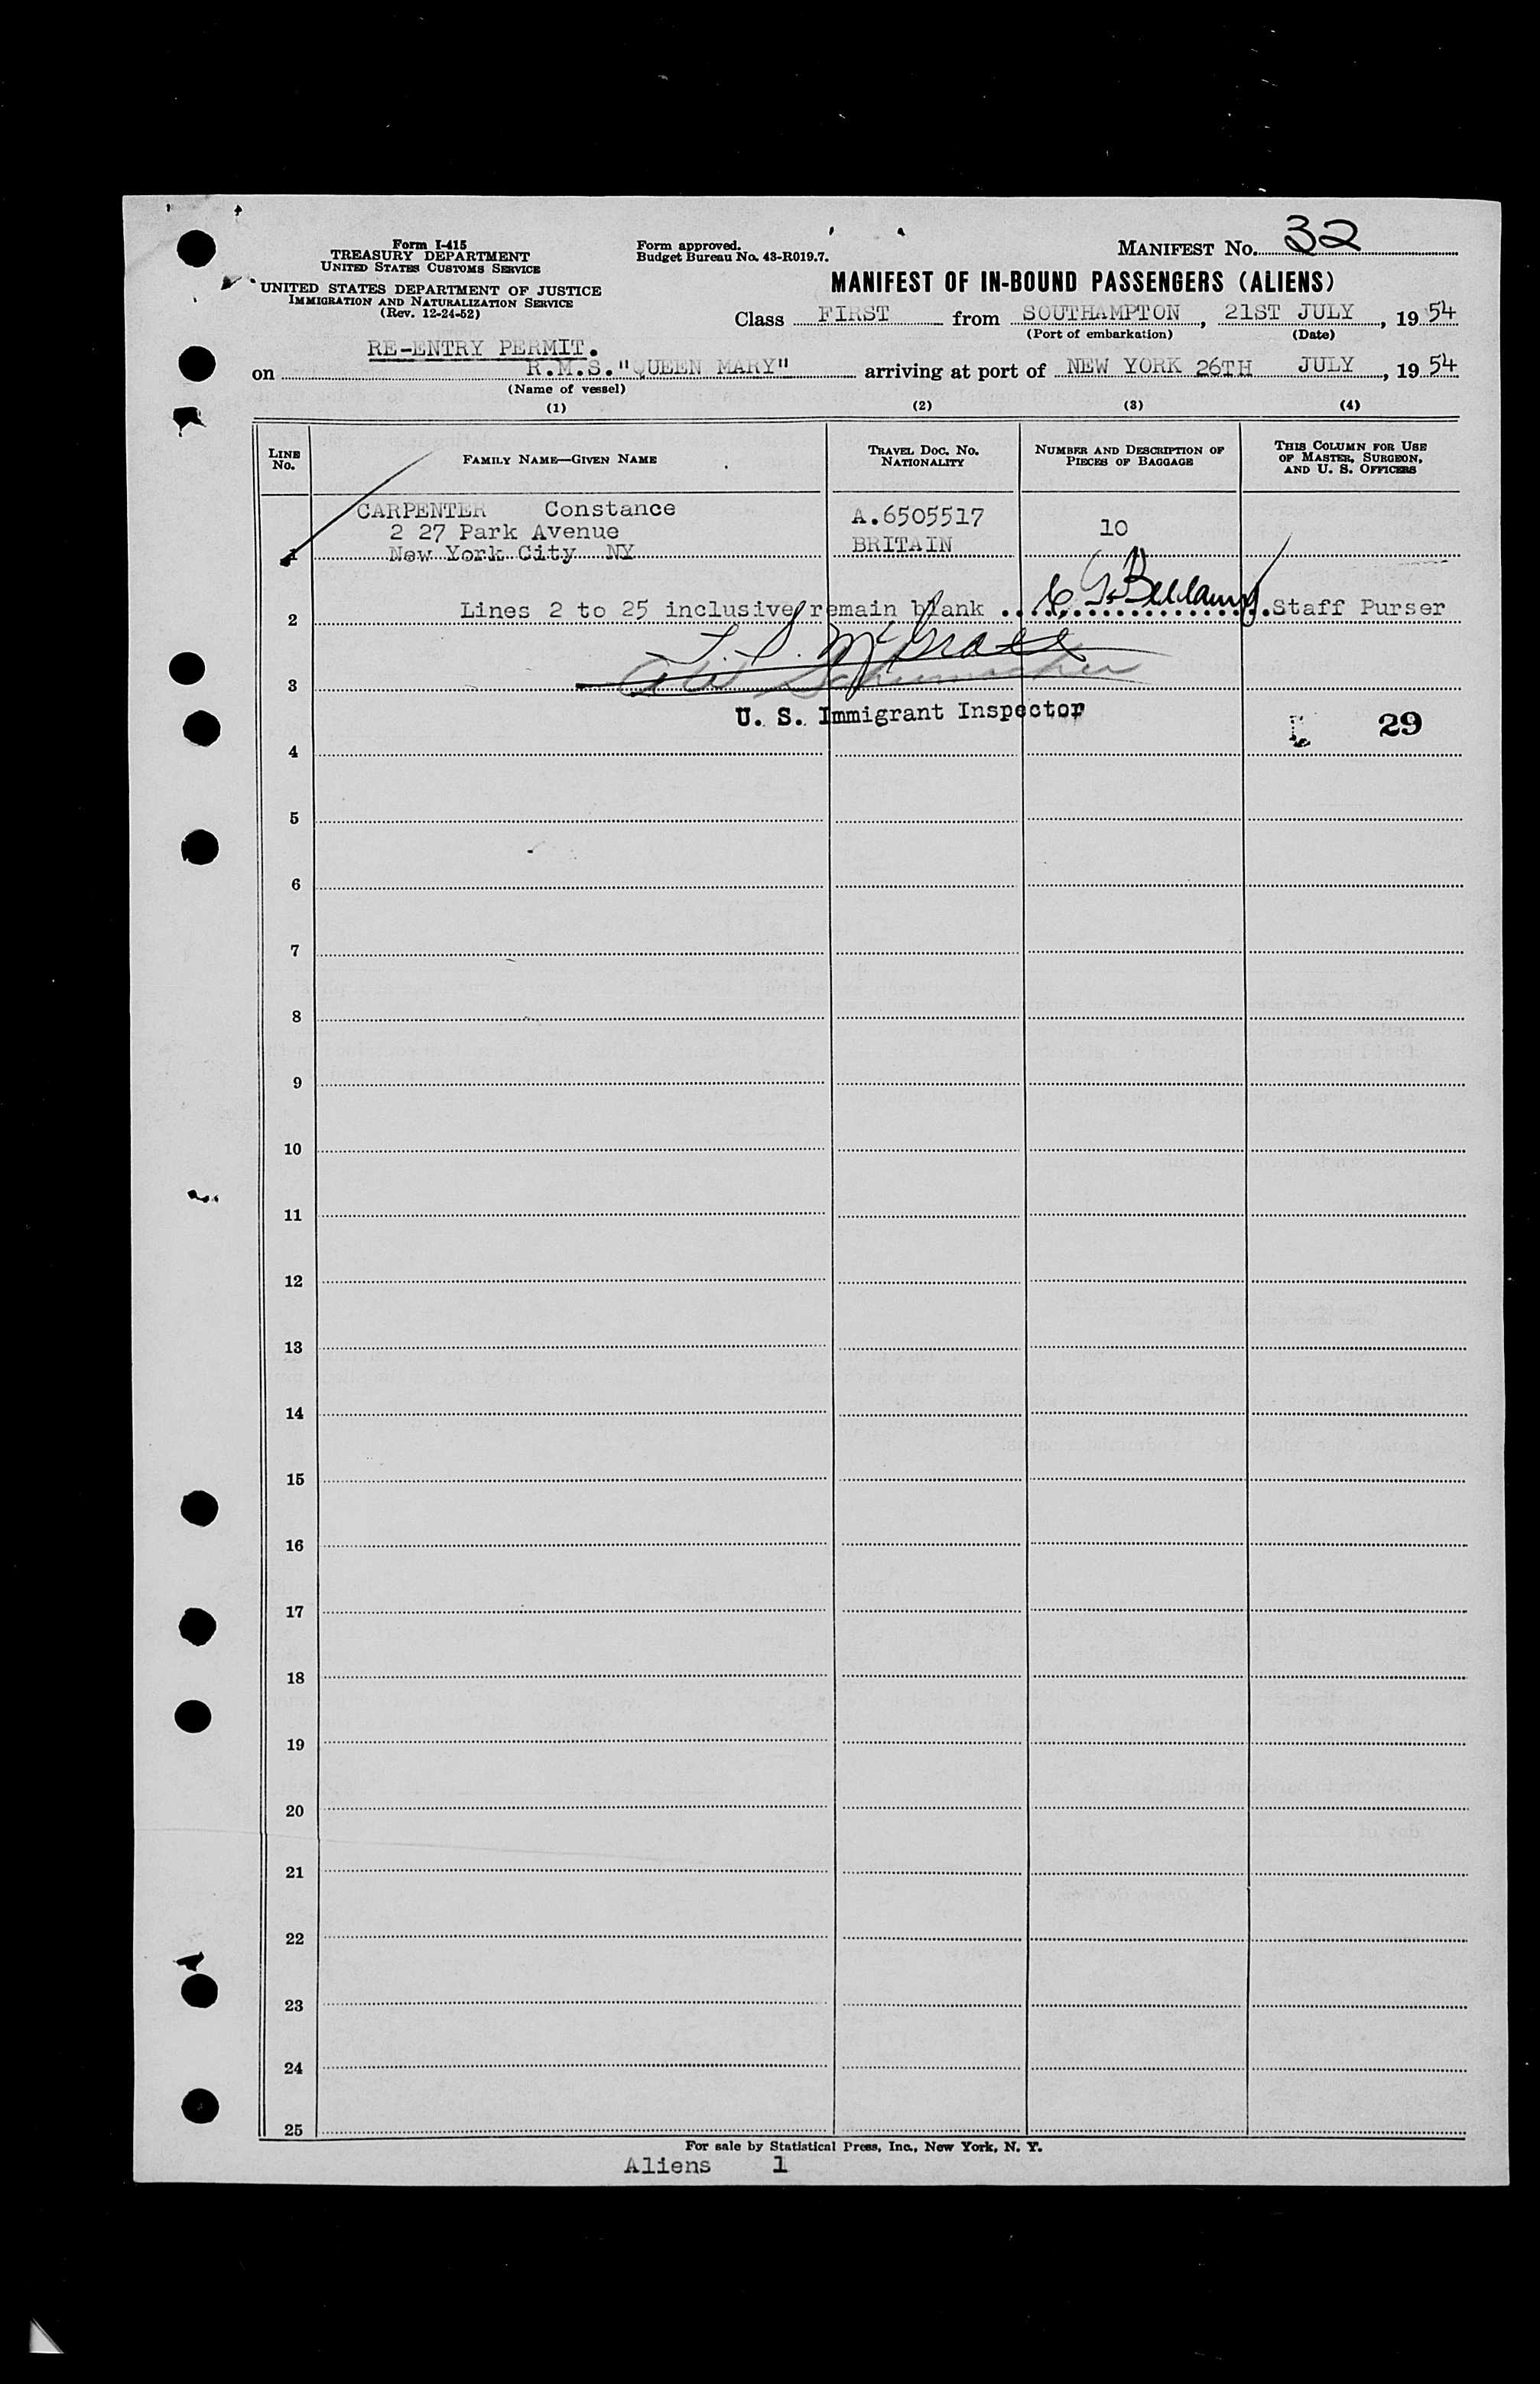 Form I-415
TREASURY DEPARTMENT
UNITED STATES CUSTOMS SERVICE
UNITED STATES DEPARTMENT OF JUSTICE
IMMIGRATION AND NATURALIZATION SERVICE
(Rev. 12-24-52)
Form approved.
Budget Bureau No. 43-R019.7.
MANIFEST NO. 32
MANIFEST OF IN-BOUND PASSENGERS (ALIENS)
Class FIRST from SOUTHAMPTON, 21ST JULY, 1954
(Port of embarkation) (Date)
RE-ENTRY PERMIT.
on R.M.S. "QUEEN MARY" arriving at port of NEW YORK 26TH JULY, 1954
(Name of vessel)
(1) (2) (3) (4)
LINE No. FAMILY NAME—GIVEN NAME TRAVEL DOC. NO. NATIONALITY NUMBER AND DESCRIPTION OF PIECES OF BAGGAGE THIS COLUMN FOR USE OF MASTER, SURGEON, AND U. S. OFFICERS
CARPENTER Constance A.6505517 10
2 27 Park Avenue
1 New York City NY BRITAIN
2 Lines 2 to 25 inclusive remain blank Bellamy Staff Purser
McGrath
3 Schumacher
U. S. Immigrant Inspector
29
4
5
6
7
8
9
10
11
12
13
14
15
16
17
18
19
20
21
22
23
24
25
For sale by Statistical Press, Inc., New York, N. Y.
Aliens 1